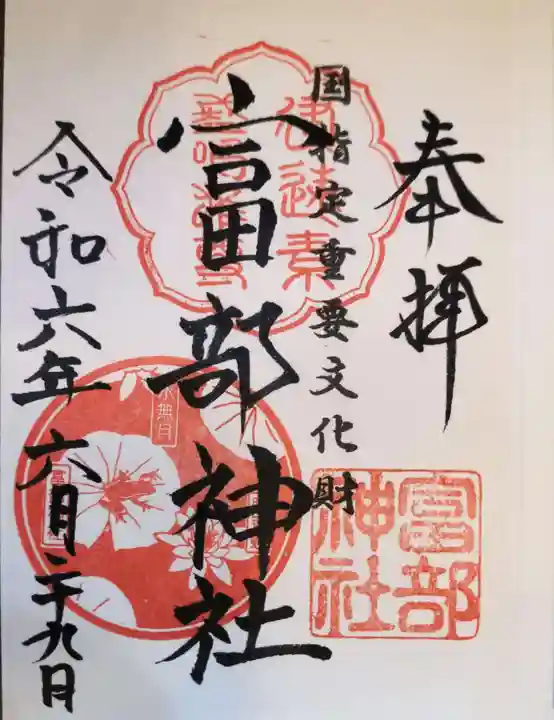 奉拝
国指定重要文化財
富部神社
令和六年六月二十九日
富部
神社
水無月